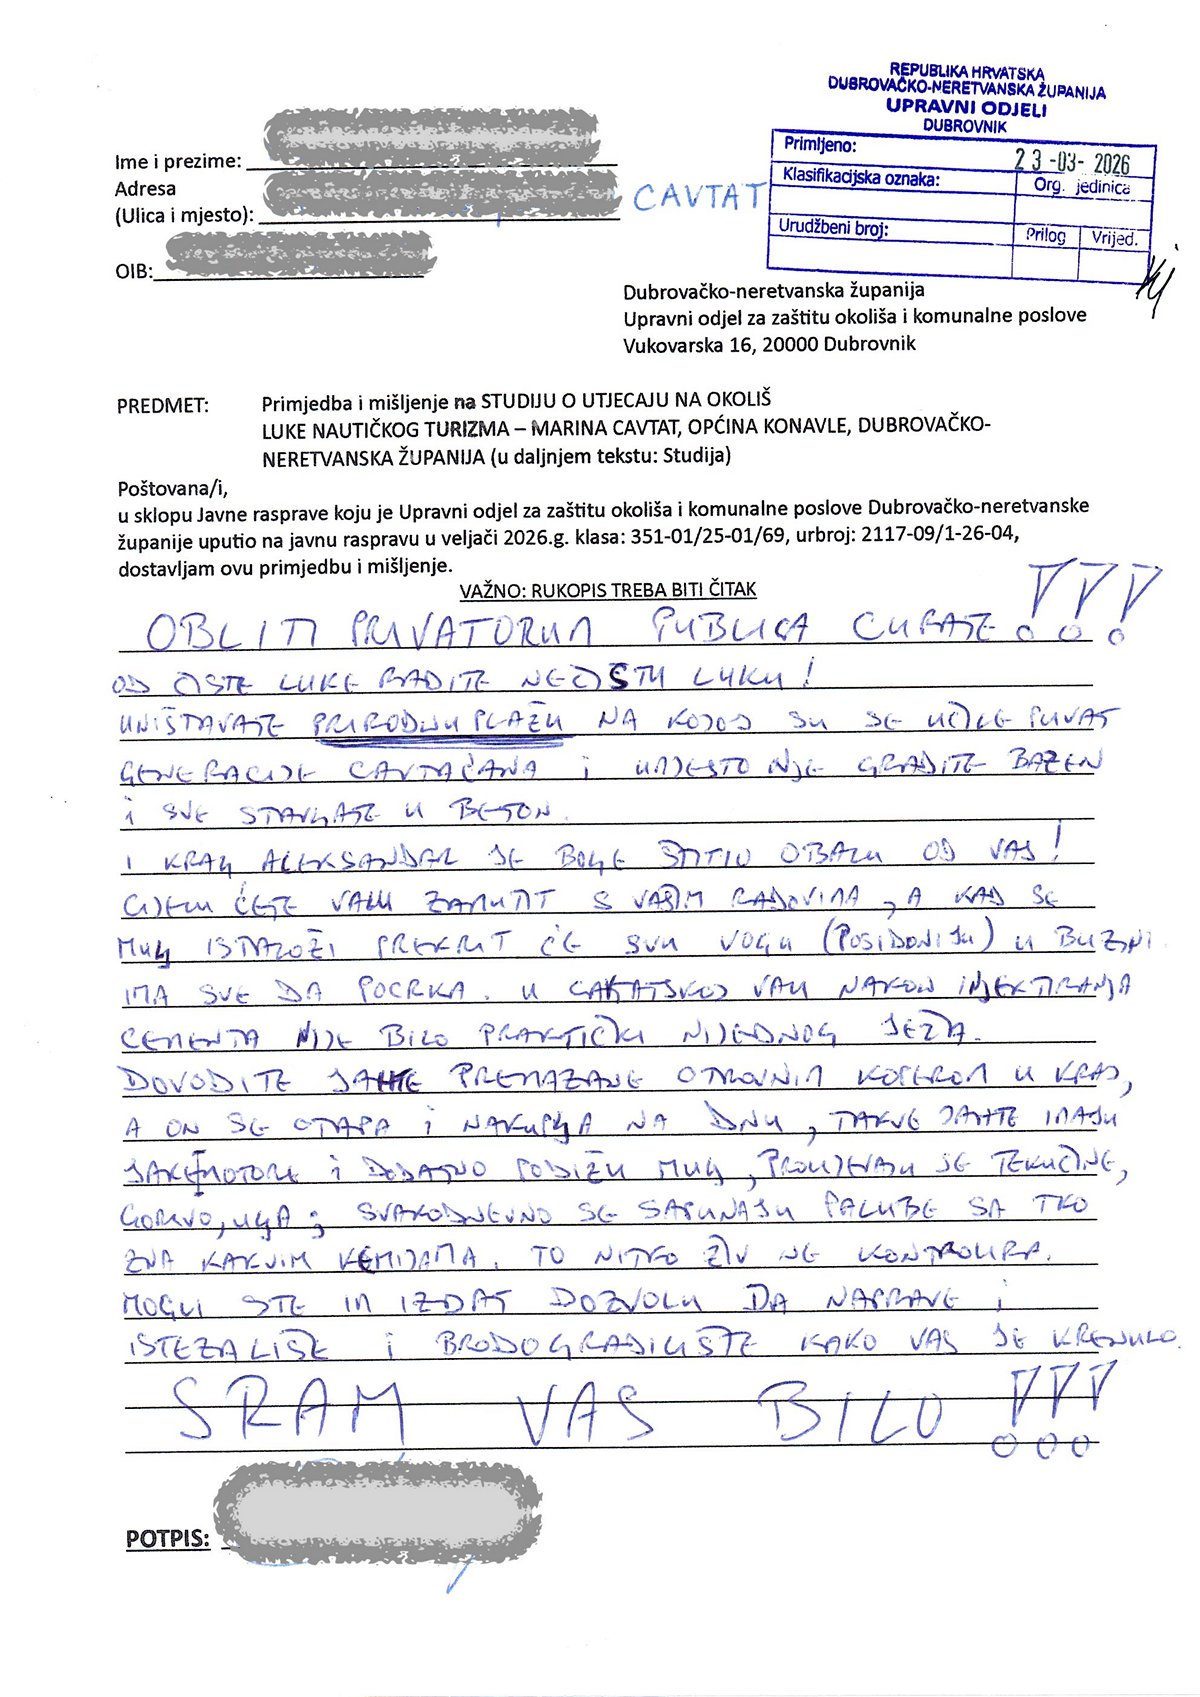 REPUBLIKA HRVATSKA
DUBROVAČKO-NERETVANSKA ŽUPANIJA
UPRAVNI ODJELI
DUBROVNIK
Primljeno: 23-03-2026
Klasifikacijska oznaka: Org. jedinica
Urudžbeni broj: Prilog Vrijed.
Ime i prezime:
Adresa
(Ulica i mjesto): CAVTAT
OIB:
Dubrovačko-neretvanska županija
Upravni odjel za zaštitu okoliša i komunalne poslove
Vukovarska 16, 20000 Dubrovnik
PREDMET: Primjedba i mišljenje na STUDIJU O UTJECAJU NA OKOLIŠ
LUKE NAUTIČKOG TURIZMA – MARINA CAVTAT, OPĆINA KONAVLE, DUBROVAČKO-
NERETVANSKA ŽUPANIJA (u daljnjem tekstu: Studija)
Poštovana/i,
u sklopu Javne rasprave koju je Upravni odjel za zaštitu okoliša i komunalne poslove Dubrovačko-neretvanske
županije uputio na javnu raspravu u veljači 2026.g. klasa: 351-01/25-01/69, urbroj: 2117-09/1-26-04,
dostavljam ovu primjedbu i mišljenje.
VAŽNO: RUKOPIS TREBA BITI ČITAK
OBLITI PRIVATORUM PUBLICA CURATE !!!
OD ČISTE LUKE RADITE NEČISTU LUKU!
UNIŠTAVATE PRIRODNU PLAŽU NA KOJOJ SU SE UČILE PLIVAT
GENERACIJE CAVTAĆANA I UMJESTO NJE GRADITE BAZEN
I SVE STAVLJATE U BETON.
I KRALJ ALEKSANDAR JE BOLJE ŠTITIO OBALU OD VAS!
CIJELU ĆETE VALU ZAMUTIT S VAŠIM RADOVIMA, A KAD SE
MULJ ISTALOŽI PREKRIT ĆE SVU VOGU (POSIDONIJU) U BLIZINI
IMA SVE DA POCRKA. U VALI NAKON INJEKTIRANJA
CEMENTA NIJE BILO PRAKTIČKI NIJEDNOG JEŽA.
DOVODITE JAHTE PREMAZANE OTROVNIM KOPEROM U KRAJ,
A ON SE OTAPA I NAKUPLJA NA DNU, TAKVE JAHTE IMAJU
JAKE MOTORE I DODATNO PODIŽU MULJ, PROLIJEVAJU SE TEKUĆINE,
GORIVO, ULJA; SVAKODNEVNO SE SAPUNAJU PALUBE SA TKO
ZNA KAKVIM KEMIJAMA. TO NITKO ŽIV NE KONTROLIRA.
MOGLI STE IM IZDAT DOZVOLU DA NAPRAVE I
ISTEZALIŠTE I BRODOGRADILIŠTE KAKO VAS JE KRENULO.
SRAM VAS BILO !!!
POTPIS: